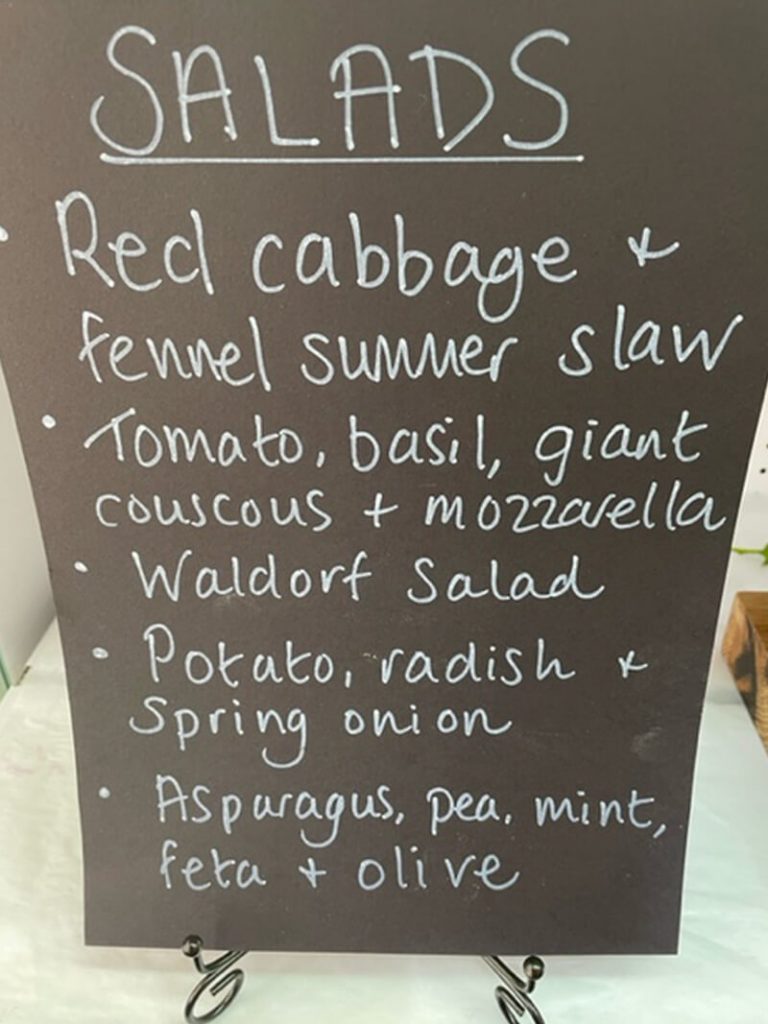 SALADS
• Red cabbage +
fennel summer slaw
• Tomato, basil, giant
couscous + mozzarella
• Waldorf Salad
• Potato, radish +
Spring onion
• Asparagus, pea, mint,
feta + olive